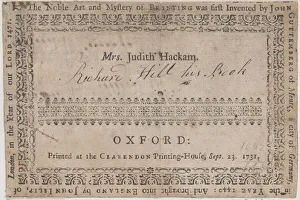 The Noble Art and Mystery of PRINTING was first Invented by JOHN
GUTTENBERG of Mentz, a City of Germany,
in the YEAR
and brought into ENGLAND by JOHN
London, in the Year of our LORD 1471.
Mrs. Judith Hackam.
Richard Hill his Book
OXFORD:
Printed at the CLARENDON Printing-House, Sept. 23. 1731.